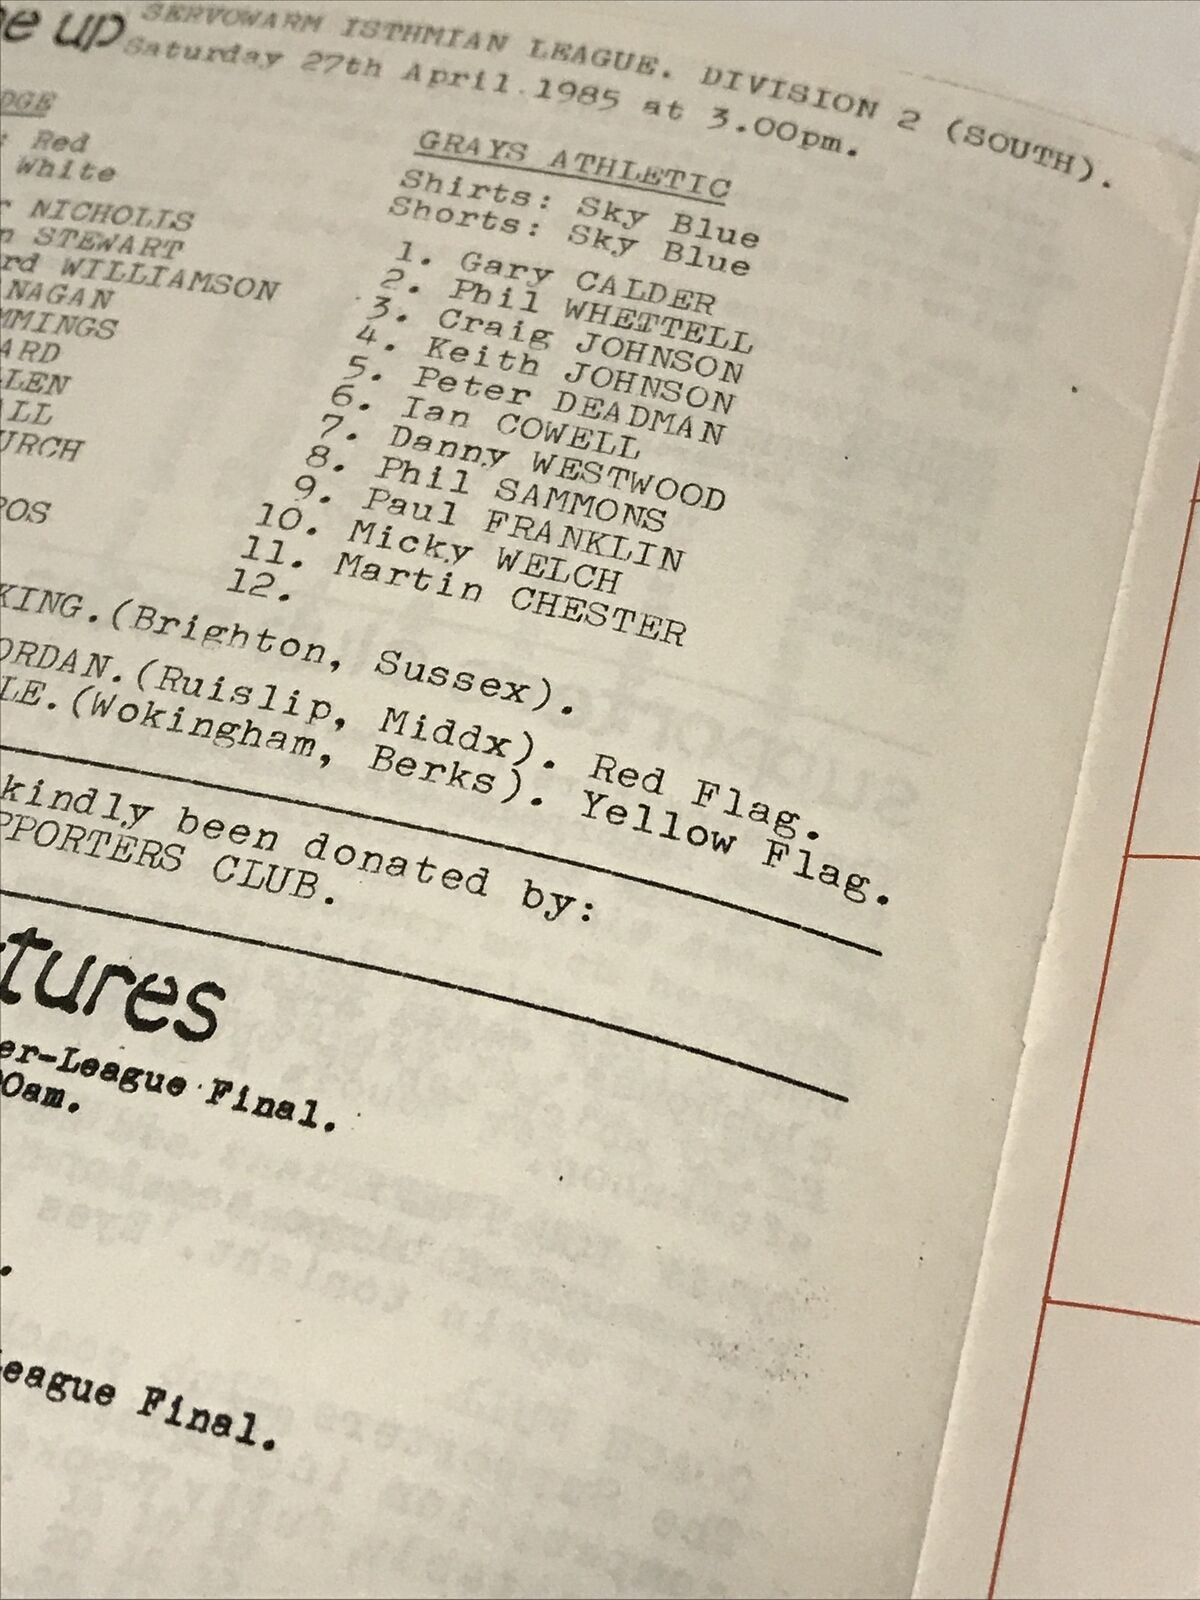 e up SERVOWARM ISTHMIAN LEAGUE. DIVISION 2 (SOUTH).
Saturday 27th April 1985 at 3.00pm.
DGE
: Red
White
NICHOLLS
STEWART
rd WILLIAMSON
NAGAN
MMINGS
ARD
LLEN
ALL
URCH
ROS
GRAYS ATHLETIC
Shirts: Sky Blue
Shorts: Sky Blue
1. Gary CALDER
2. Phil WHETTELL
3. Craig JOHNSON
4. Keith JOHNSON
5. Peter DEADMAN
6. Ian COWELL
7. Danny WESTWOOD
8. Phil SAMMONS
9. Paul FRANKLIN
10. Micky WELCH
11. Martin CHESTER
12.
KING.(Brighton, Sussex).
ORDAN.(Ruislip, Middx). Red Flag.
LE.(Wokingham, Berks). Yellow Flag.
kindly been donated by:
PPORTERS CLUB.
tures
er-League Final.
0am.
.
eague Final.